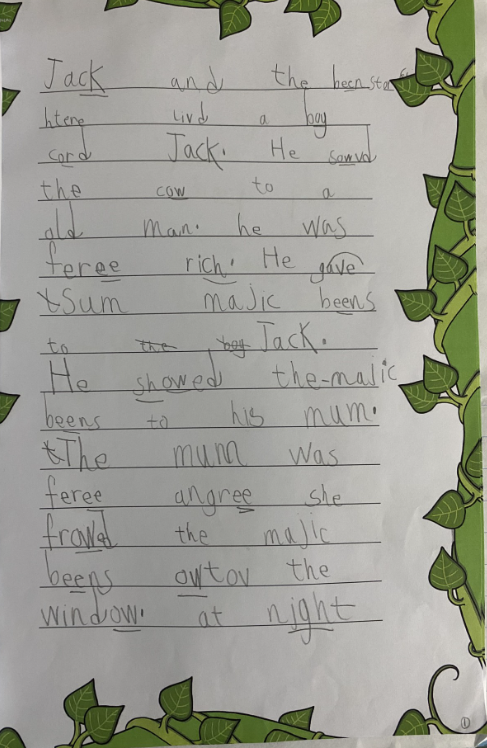 Jack and the beenstalk
htere livd a boy
cord Jack. He sowud
the cow to a
old man. he was
feree rich. He gave
Sum majic beens
to the boy Jack.
He showed the majic
beens to his mum.
The mum was
feree angree she
frowd the majic
beens owtov the
window. at night
1